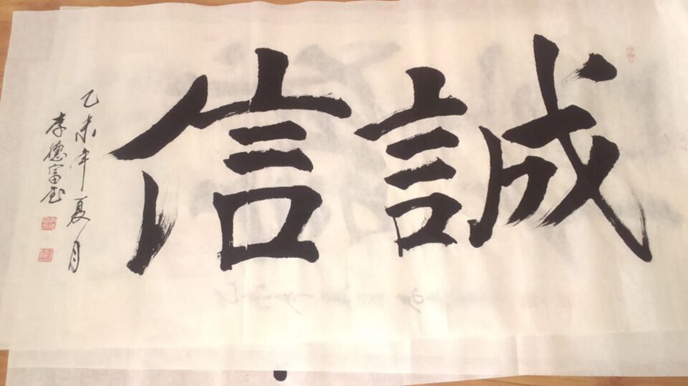 誠信
乙未年夏月
李德富书